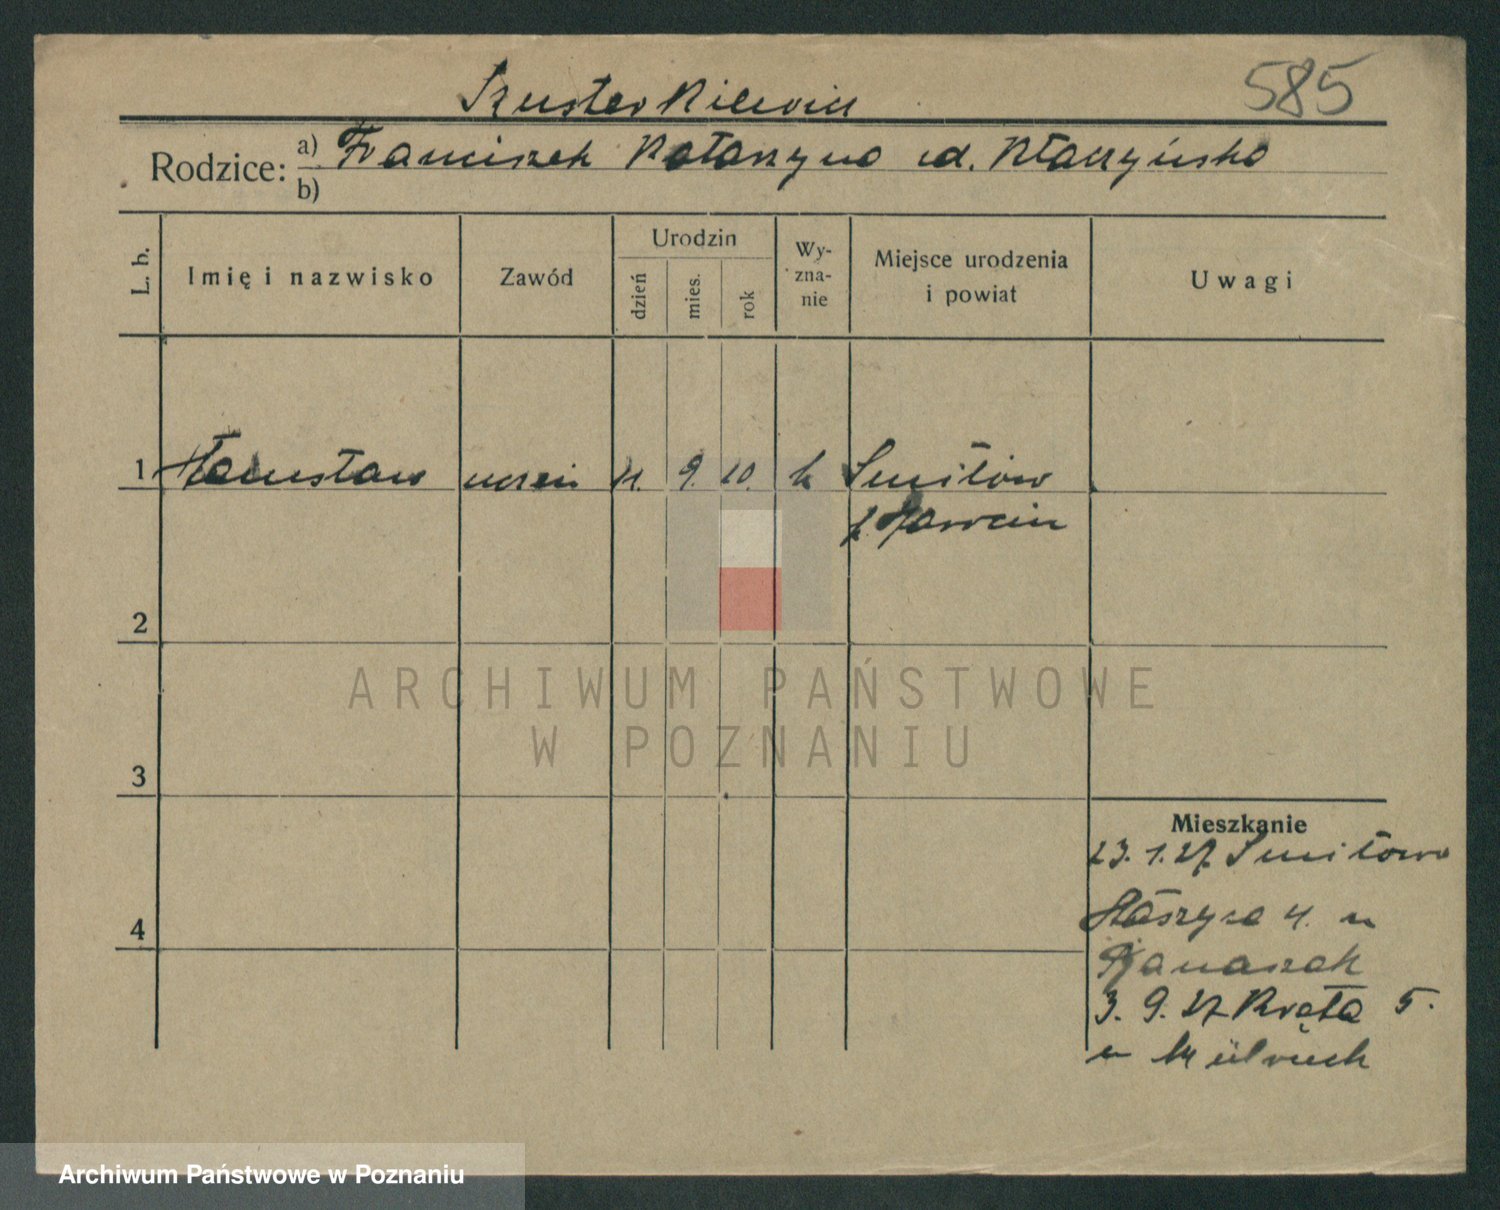 Szusterkiewicz
585
Rodzice: a) Franciszek Katarzyna
b)
L. b.
Imię i nazwisko
Zawód
Urodzin
dzień
mies.
rok
Wy-
zna-
nie
Miejsce urodzenia
i powiat
Uwagi
1 Stanisław uczeń 11. 9. 10. k Smiłów
p. Jarocin
2
3
4
Mieszkanie
23. 1. 27 Smiłowo
Staszyca 4. u
Banaszak
3. 9. 27 Kręta 5.
u
ARCHIWUM PAŃSTWOWE
W POZNANIU
Archiwum Państwowe w Poznaniu